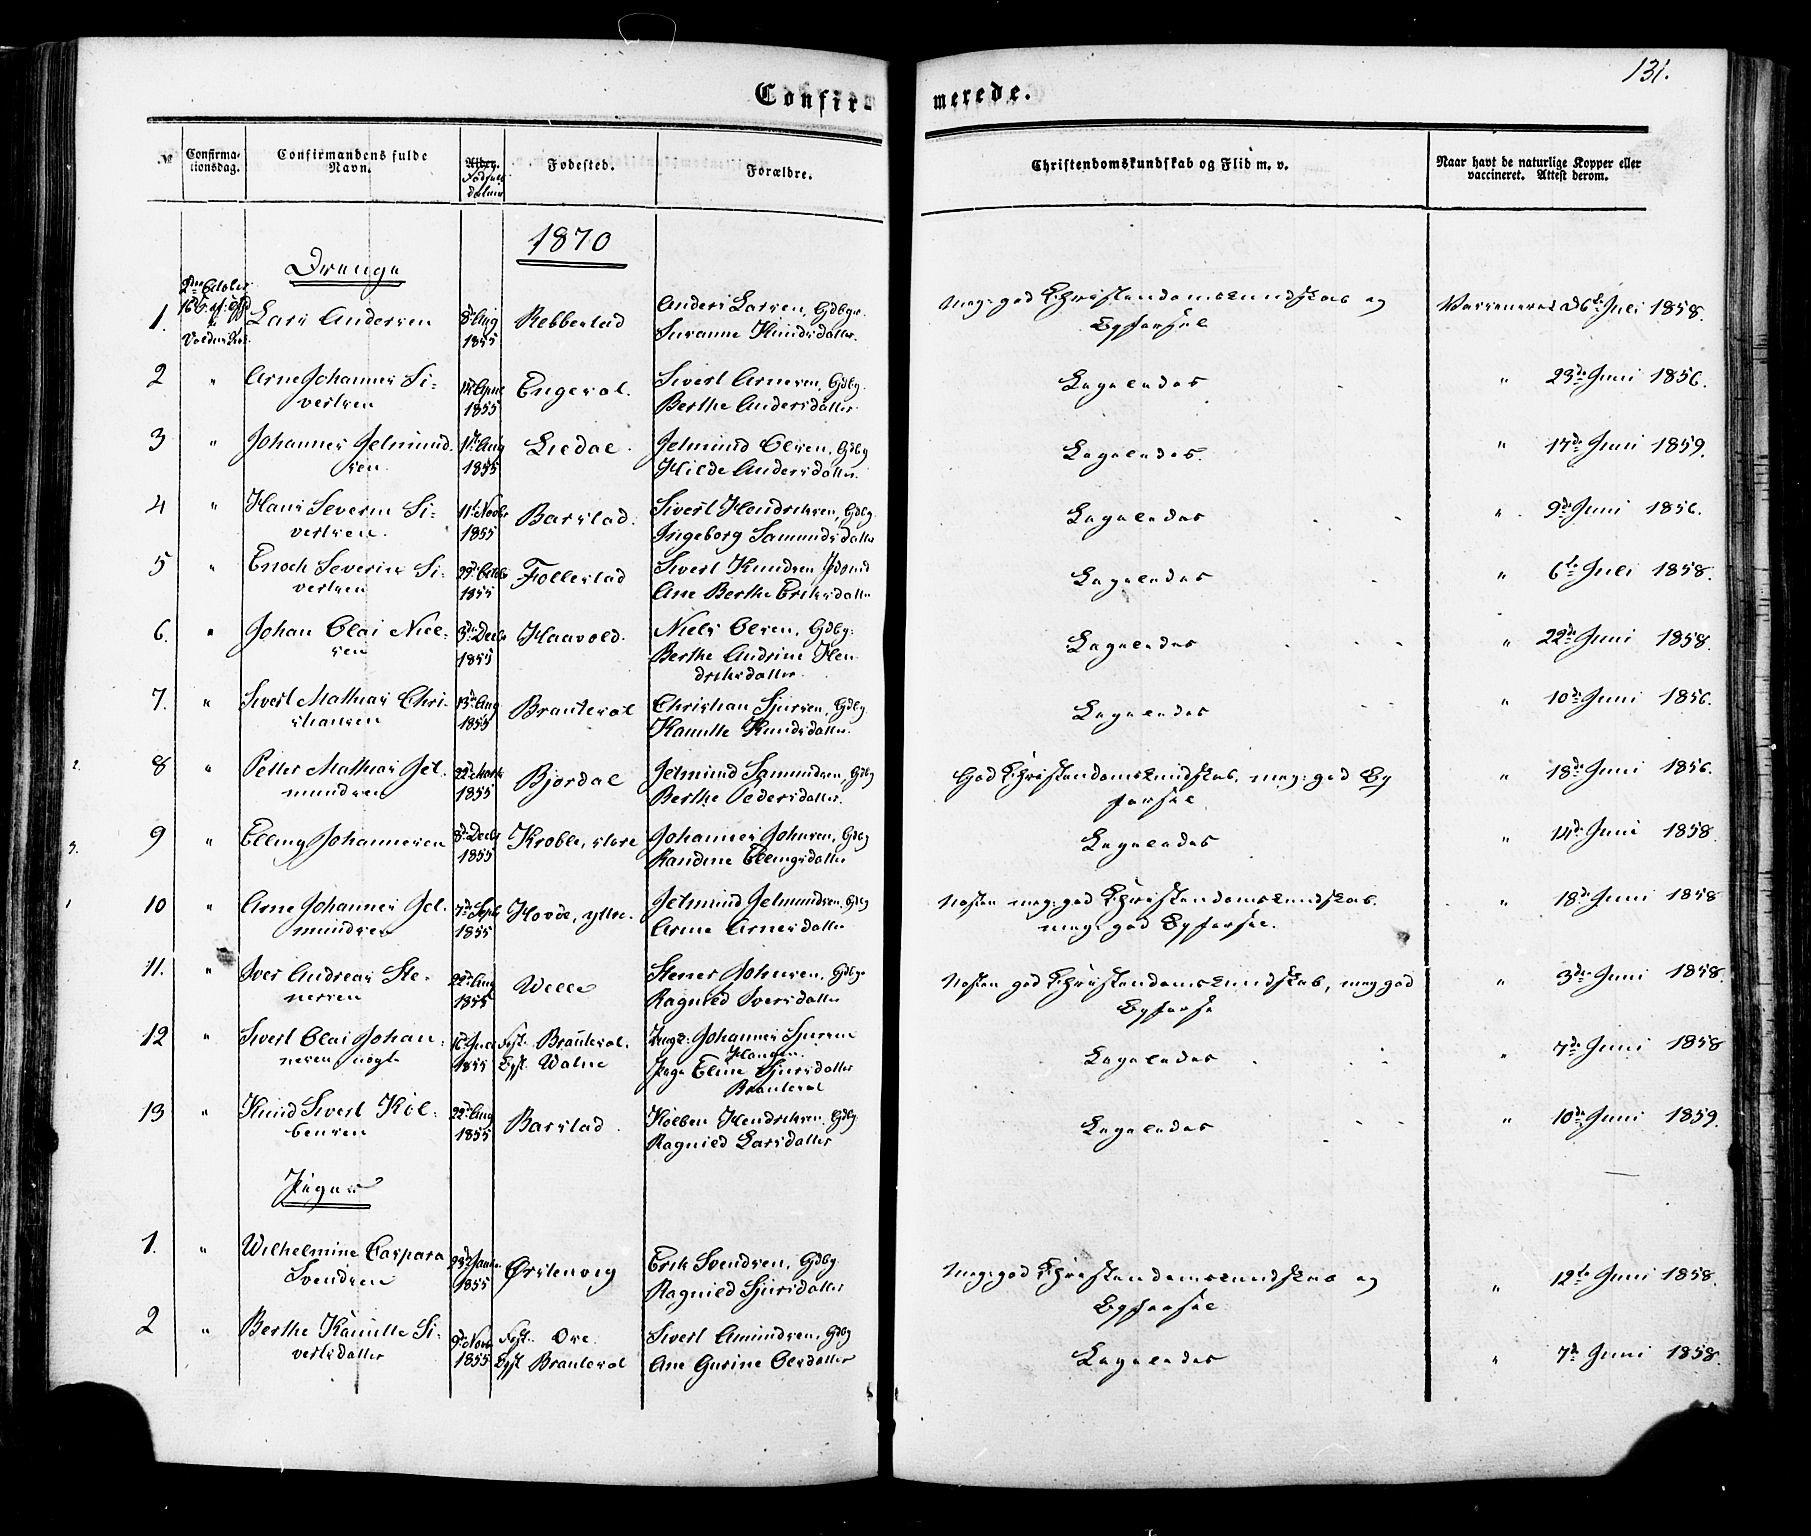 131.
Confirmerede.
№
Confirmationsdag.
Confirmandens fulde Navn.
Fødested.
Forældre.
Christendomskundskab og Flid m. v.
Naar havt de naturlige Kopper eller vaccineret. Attest derom.
1870
Drenge
1. Lars Andersen 8de Aug 1855 Rebbestad Anders Larsen, Gdbgr. Susanne Knudsdatter Meg: god Christendomskundskab og Opførsel Vaccineret d 6te Juli 1858.
2 " Arne Johannes Sivertsen 1855 Engeset. Sivert Arnesen, Gdbg. Berthe Andersdatter Ligeledes " 23de Juni 1856.
3 " Johannes Jetmundsen 1ste Aug 1855 Liedal. Jetmund Olsen, Gdbg Hilde Andersdatter Ligeledes. " 17de Juni 1859.
4 " Hans Severin Sivertsen. 11te Novbr 1855 Barstad. Sivert Hendriksen, Gdbg. Ingeborg Samundsdatter Ligeledes " 9de Juni 1856.
5 " Enoch Severin Sivertsen 29de Octobr 1855 Follestad Sivert Knudsen Ane Berthe Eriksdatter Ligeledes " 6te Juli 1858.
6. " Johan Olai Nielsen 3die Decbr 1855 Haavold. Niels Olsen, Gdbg. Berthe Andrine Hendriksdatter. Ligeledes " 22de Juni 1858.
7. " Sivert Mathias Christiansen 13de Aug 1855 Brauteset Christian Sjursen, Gdbg Kanutte Knudsdatter. Ligeledes " 10de Juni 1856.
8 " Petter Mathias Jetmundsen 22de Marts 1855 Bjørdal Jetmund Samundsen, Gdbg Berthe Pedersdatter. God Christendomskundskab, meg: god Opførsel. " 18de Juni 1856.
9 " Elling Johannesen 8de Decbr 1855 Krøble, store Johannes Johnsen, Gdbg Randine Ellingsdatter Ligeledes " 14de Juni 1858.
10 " Arne Johannes Jetmundsen 7de Septbr 1855 Hovde, yttre. Jetmund Jetmundsen, Gdbg Anne Arnesdatter Næsten meg: god Christendomskundskab. meg: god Opførsel. " 18de Juni 1858
11. " Iver Andreas Stenersen 22de Aug 1855 Welle Stener Johnsen, Gdbg. Ragnild Iversdatter Næsten god Christendomskundskab, meg: god Opførse " 3die Juni 1858.
12 " Sivert Olai Johannesen uægte 1855 Fst. Brauteset. Opst. Walne Ungk: Johannes Sjursen Pige Eline Sjursdatter Brauteset Ligeledes " 7de Juni 1858
13 " Knud Sivert Kolbensen 22de Aug 1855 Barstad. Kolben Hendriksen, Gdbg. Ragnild Larsdatter Ligeledes " 10de Juni 1859.
Piger
1. " Wilhelmine Caspara Svendsen 1855 Ørstenvig Erik Svendsen, Gdbg Ragnild Sjursdatter Meg: god Christendomskundskab og Opførsel " 12te Juni 1858.
2 " Berthe Kanutte Sivertsdatter 9de Novbr 1855 Fst. Ose. Opst Brauteset Sivert Amundsen, Gdbg Ane Gurine Olsdatter Ligeledes " 7de Juni 1858.